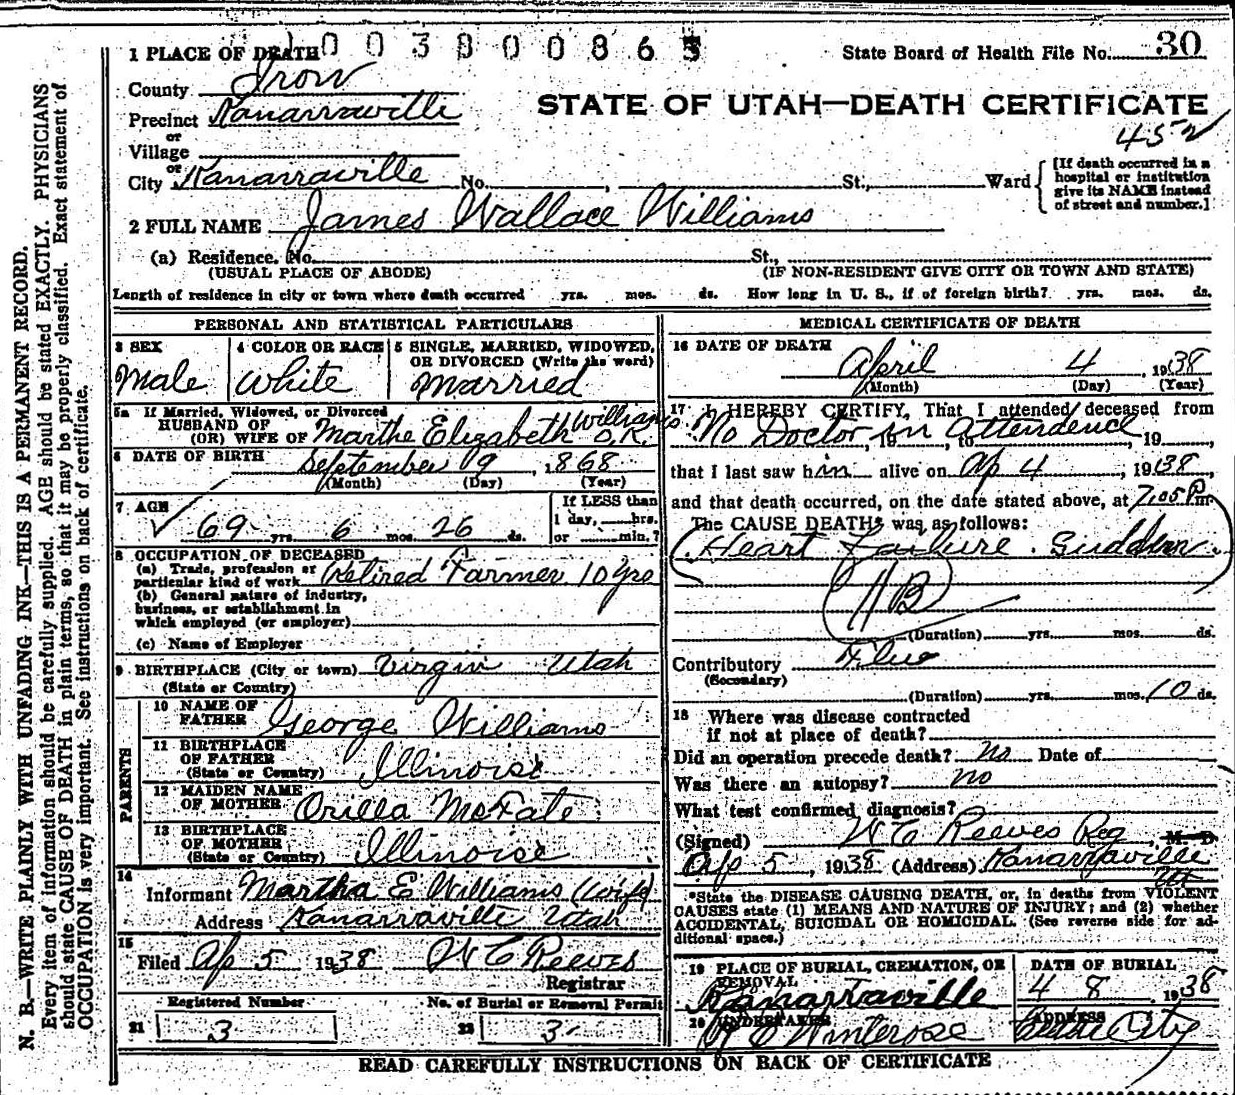 1 PLACE OF DEATH 1003800865 State Board of Health File No. 30
County Iron
STATE OF UTAH—DEATH CERTIFICATE
Precinct Kanarraville
or
Village
45 ✓
or
City Kanarraville No. , St., Ward
[If death occurred in a
hospital or institution
give its NAME instead
of street and number.]
2 FULL NAME James Wallace Williams
(a) Residence. No. St.,
(USUAL PLACE OF ABODE) (IF NON-RESIDENT GIVE CITY OR TOWN AND STATE)
Length of residence in city or town where death occurred yrs. mos. ds. How long in U. S., if of foreign birth? yrs. mos. ds.
PERSONAL AND STATISTICAL PARTICULARS
3 SEX 4 COLOR OR RACE 5 SINGLE, MARRIED, WIDOWED,
OR DIVORCED (Write the word)
Male White Married
5a If Married, Widowed, or Divorced
HUSBAND OF
(OR) WIFE OF Marthe Elizabeth Williams O.K.
6 DATE OF BIRTH September 9, 1868
(Month) (Day) (Year)
7 AGE
✓ 69 6 mos. 26 ds.
If LESS than
1 day, hrs.
or min.?
8 OCCUPATION OF DECEASED
(a) Trade, profession or
particular kind of work Retired Farmer 10 yrs
(b) General nature of industry,
business, or establishment in
which employed (or employer)
(c) Name of Employer
9 BIRTHPLACE (City or town) Virgin Utah
(State or Country)
PARENTS
10 NAME OF
FATHER George Williams
11 BIRTHPLACE
OF FATHER
(State or Country) Illinoise
12 MAIDEN NAME
OF MOTHER Orilla McFate
13 BIRTHPLACE
OF MOTHER
(State or Country) Illinoise
14
Informant Martha E Williams (wife)
Address Kanarraville Utah
15
Filed Ap 5 1938 W C Reeves
Registrar
Registered Number No. of Burial or Removal Permit
21 3 22 3
MEDICAL CERTIFICATE OF DEATH
16 DATE OF DEATH
April 4, 1938
(Month) (Day) (Year)
17 I HEREBY CERTIFY, That I attended deceased from
No Doctor in Attendence, 19, to, 19,
that I last saw him alive on Ap 4, 1938,
and that death occurred, on the date stated above, at 7:05 P m
The CAUSE DEATH* was as follows:
Heart Failure. Sudden
HB
(Duration) yrs. mos. ds.
Contributory Flue
(Secondary)
(Duration) yrs. mos. 10 ds.
18 Where was disease contracted
if not at place of death?
Did an operation precede death? no Date of
Was there an autopsy? no
What test confirmed diagnosis?
(Signed) W C Reeves Reg M. D
Ap 5, 1938 (Address) Kanarraville
Ut
*State the DISEASE CAUSING DEATH, or, in deaths from VIOLENT
CAUSES state (1) MEANS AND NATURE OF INJURY; and (2) whether
ACCIDENTAL, SUICIDAL OR HOMICIDAL. (See reverse side for ad-
ditional space.)
19 PLACE OF BURIAL, CREMATION, OR
REMOVAL
Kanarraville
DATE OF BURIAL
4 8, 1938
20 UNDERTAKER
Winterose
ADDRESS
Cedar City
READ CAREFULLY INSTRUCTIONS ON BACK OF CERTIFICATE
N. B.—WRITE PLAINLY WITH UNFADING INK—THIS IS A PERMANENT RECORD.
Every item of information should be carefully supplied. AGE should be stated EXACTLY. PHYSICIANS
should state CAUSE OF DEATH in plain terms, so that it may be properly classified. Exact statement of
OCCUPATION is very important. See instructions on back of certificate.